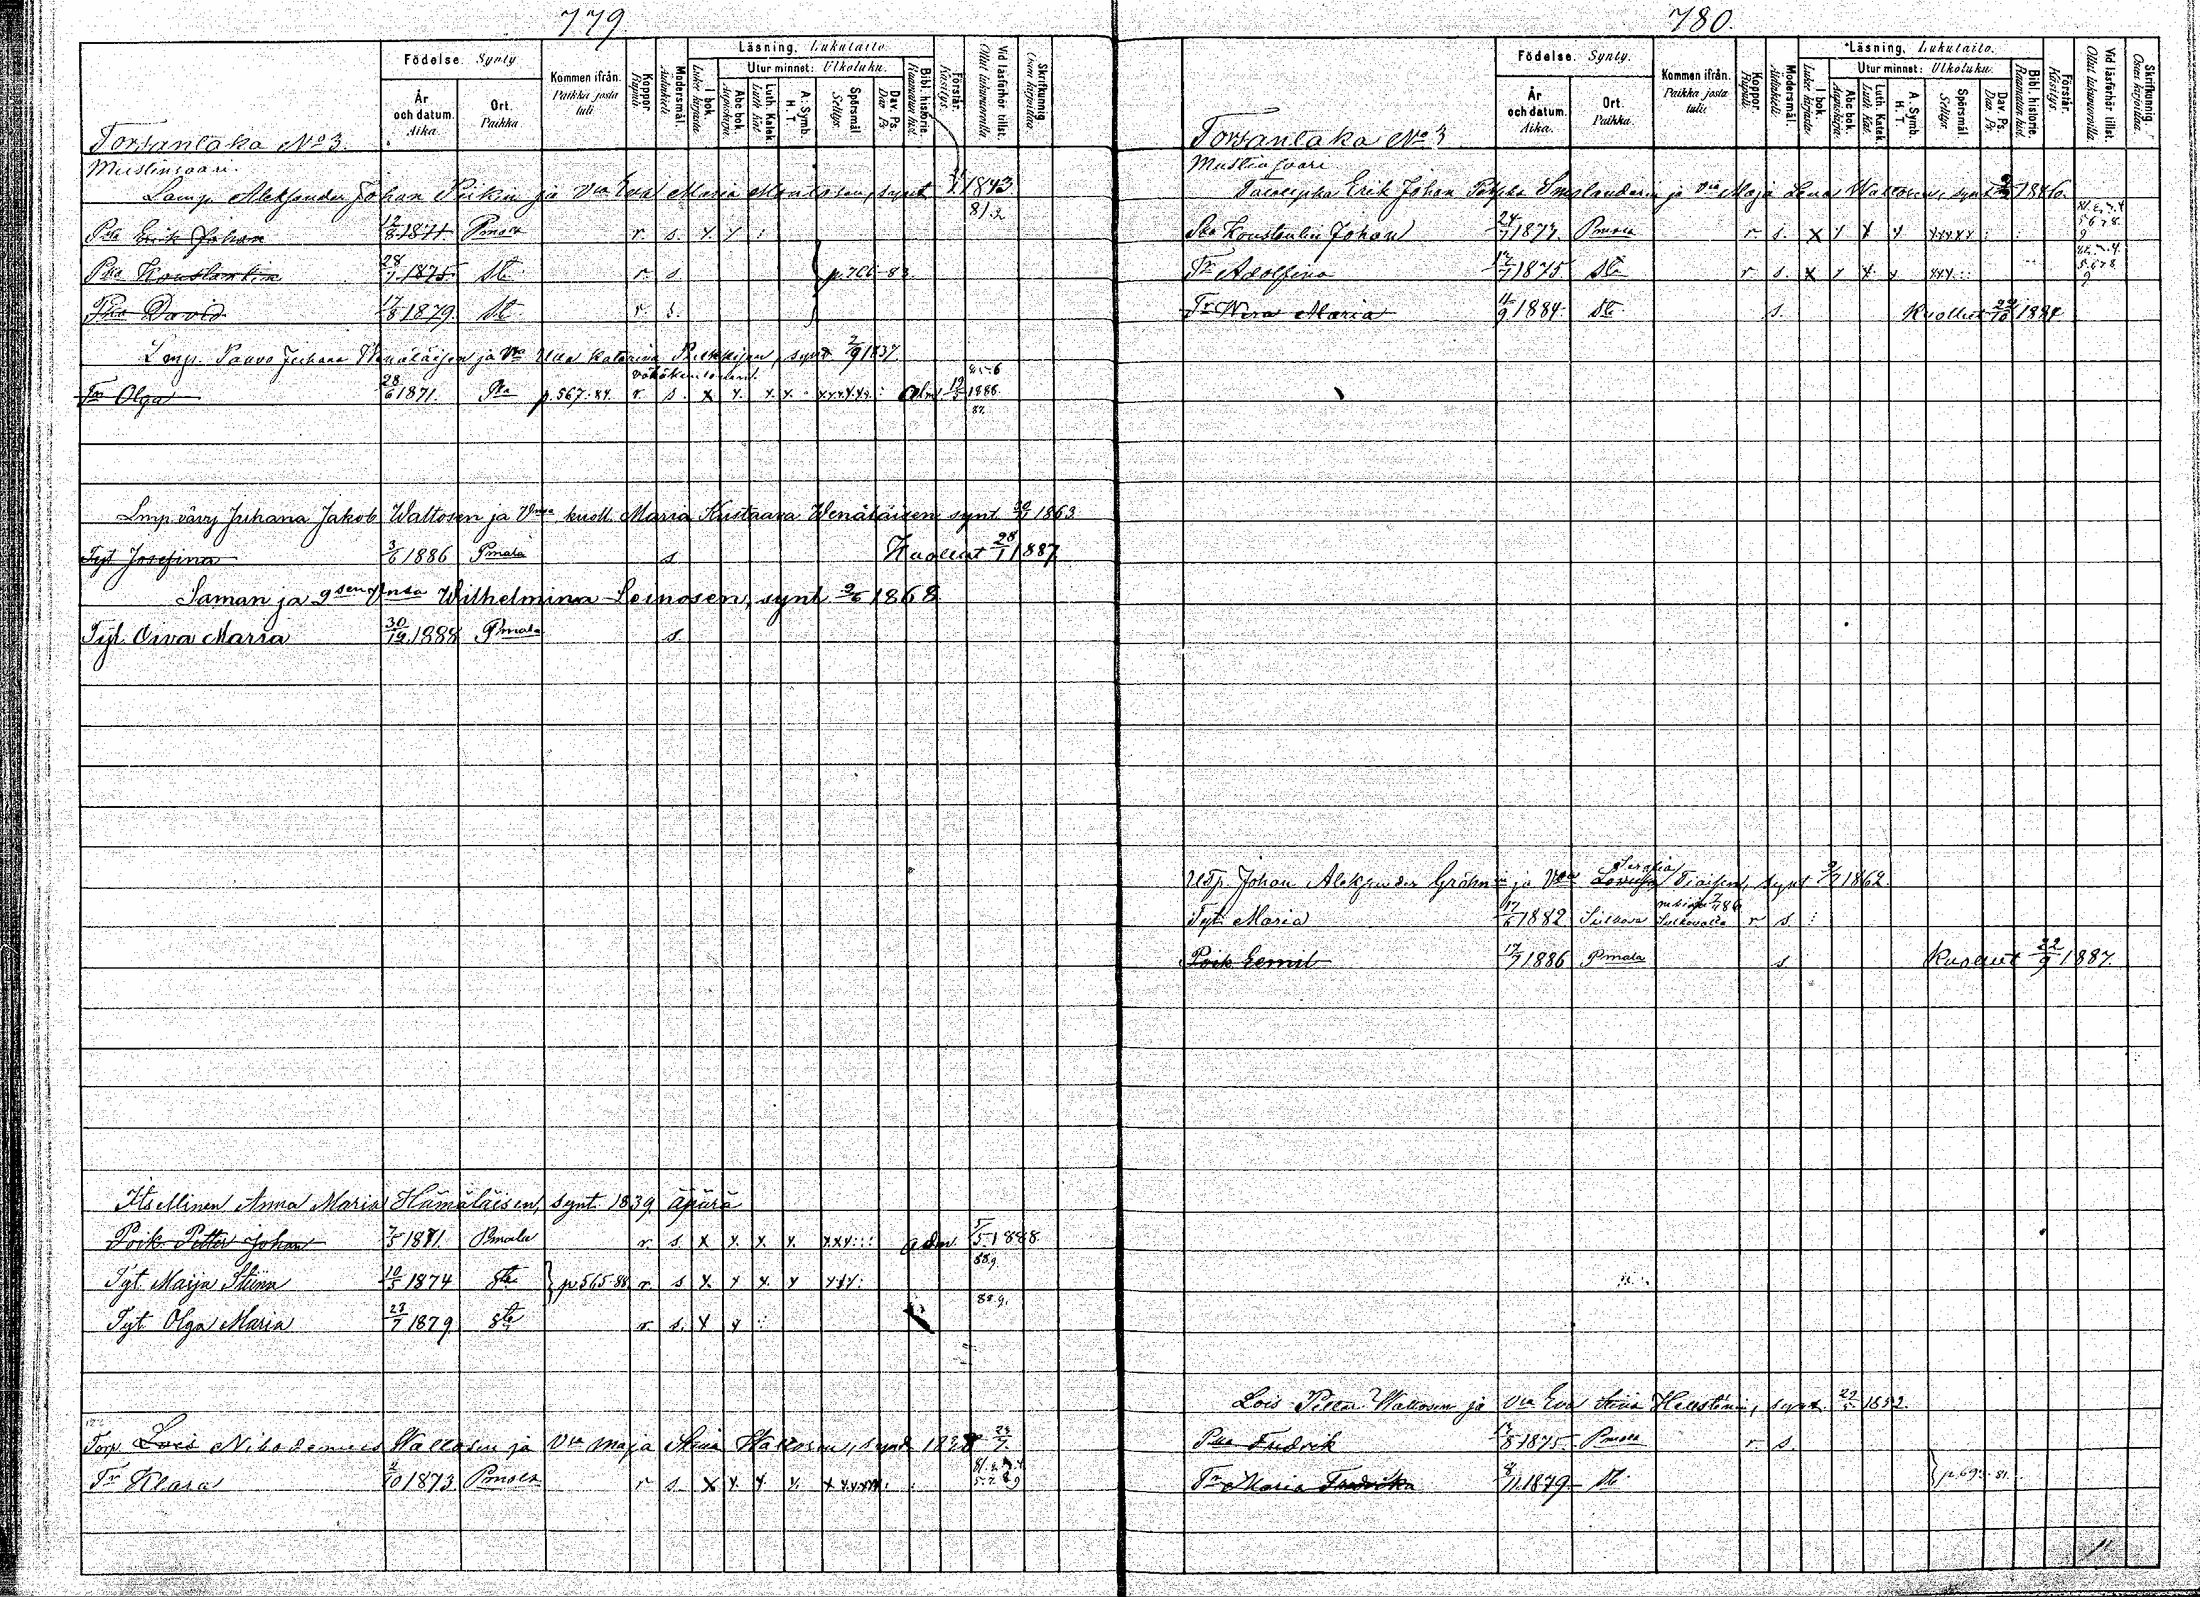 779.
Födelse. Synty
År och datum. Aika.
Ort. Paikka.
Kommen ifrån. Paikka josta tuli
Koppor. Rupuli.
Modersmål. Äidinkieli.
Läsning. Lukutaito.
I bok. Lukee kirjasta
Utur minnet: Ulkoluku.
Abc bok. Aapiskirja.
Luth. Katek. Luth. Kat.
A. Symb. H. T.
Spörsmål Selitys.
Dav. Ps. Dav. Ps.
Bibl. historie. Raamatun hist.
Förstår. Käsitys.
Vid läsförhör tillst. Ollut lukuvuorilla
Skrifkunnig. Osaa kirjoittaa.
Torsantaka No 3.
Mustinsaari.
Lamp. Aleksander Johan Pirkin ja Vva Eva Maria synt 1843
81.2
Pka Erik Johan 12/8 1871 Pmala r. s. x x :
Pka Konstantin 28/7 1875 Ste r. s } p. 706-83.
Pka David 17/8 1879. Ste r. s.
Lmp. Paavo Juhana Wenäläisen ja Vva Ulla Katarina synt 2/9 1837
Tr Olga 28/6 1871. p. 567.84 r. s. x x x x x.x.x.x.x. : Adm. 1886
87.
Lmp. vävy Juhana Jakob Waltosen ja Vmsa kuoll. Maria Kustaava Wenäläisen synt 1863
Tyt Josefina 3/6 1886 Pmala s Kuollut 28/1 1887
Saman ja 2sen Vmsa Wilhelmina Leinosen, synt 9/6 1868
Tyt. Oiva Maria 30/12 1888 Pmala s.
Itsellinen Anna Maria Hämäläisen, synt. 1839 äpärä
Poik. Petter Johan 7/5 1871. Pmala r. s. x x. x x. xxx::: adm. 5/5 1888
88.9
Tyt. Maija Stiina 10/5 1874 Ste } p. 565-88. r. s x x x x xxx:
88.9.
Tyt. Olga Maria 23/7 1879 Ste r. s. x x :
Torp. Lois Nikodemus Waltosen ja Vva Maja Stina Waltosen, synt
Tr Klara 1873 Pmala r s. x x. x x.
780.
Födelse. Synty.
År och datum. Aika.
Ort. Paikka.
Kommen ifrån. Paikka josta tuli
Koppor. Rupuli.
Modersmål. Äidinkieli.
Läsning. Lukutaito.
I bok. Lukee kirjasta
Utur minnet: Ulkoluku.
Abc bok. Aapiskirja.
Luth. Katek. Luth. Kat.
A. Symb. H. T.
Spörsmål Selitys.
Dav. Ps. Dav. Ps.
Bibl. historie. Raamatun hist.
Förstår. Käsitys.
Vid läsförhör tillst. Ollut lukuvuorilla.
Skrifkunnig. Osaa kirjoittaa.
Torsantaka No 3
Mustinsaari
Erik Johan ja Vva Maja Lena Waltosen, synt 1846.
Pka Konstantin Johan 24/7 1877. Pmala r. s. x x x x xxxxx : :
Tr Adolfina 12/7 1875 Ste r s. x x x. x xxx:::
Tr Wera Maria 11/9 1884. Ste s. Kuollut 29/10 1884
Johan Aleksander Gröhnin ja Vva Tiaisen, synt 9/7 1862.
Tyt. Maria 17/6 1882 Sulkava Sulkavalta r s. :
Poik Eemil 17/7 1886 Pmala s. Kuollut 22/9 1887.
Lois Petter Waltosen ja Vva Eva Stina Hellsténin, synt. 27/5 1852.
Pka Fredrik 12/8 1875 Pmala r s.
Tr Maria Fredrika 8/11 1879. Ste